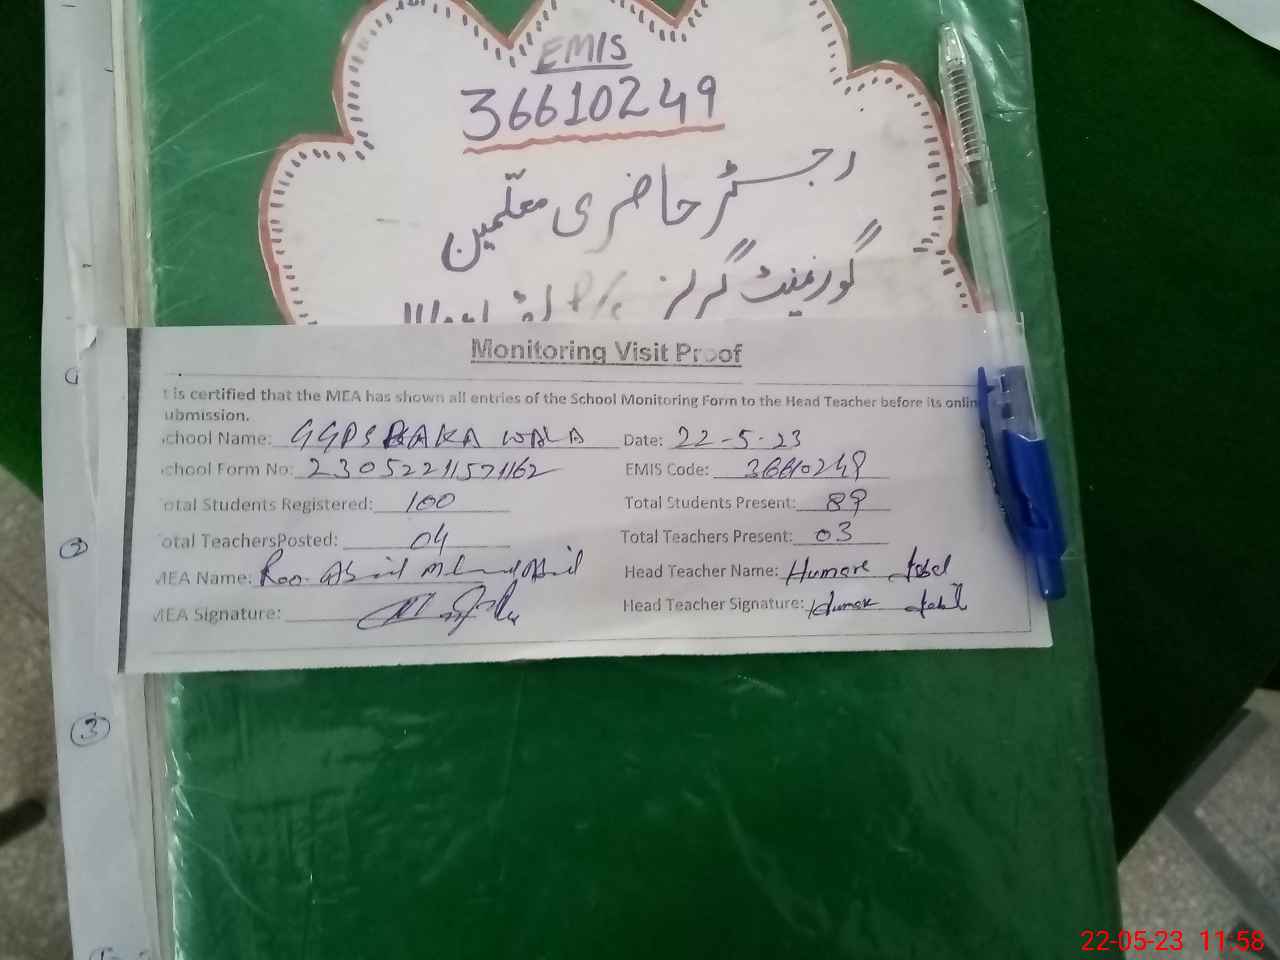 EMIS
36610249
رجسٹر حاضری معلّمین
گورمنیٹ گرلز
Monitoring Visit Proof
t is certified that the MEA has shown all entries of the School Monitoring Form to the Head Teacher before its onlin
ubmission.
chool Name: GGPS BAKA WALA Date: 22-5-23
chool Form No: 23052211571162 EMIS Code: 36610249
otal Students Registered: 100 Total Students Present: 89
otal TeachersPosted: 04 Total Teachers Present: 03
MEA Name: Rao Head Teacher Name: Humare
MEA Signature: Head Teacher Signature:
2
3
22-05-23 11:58